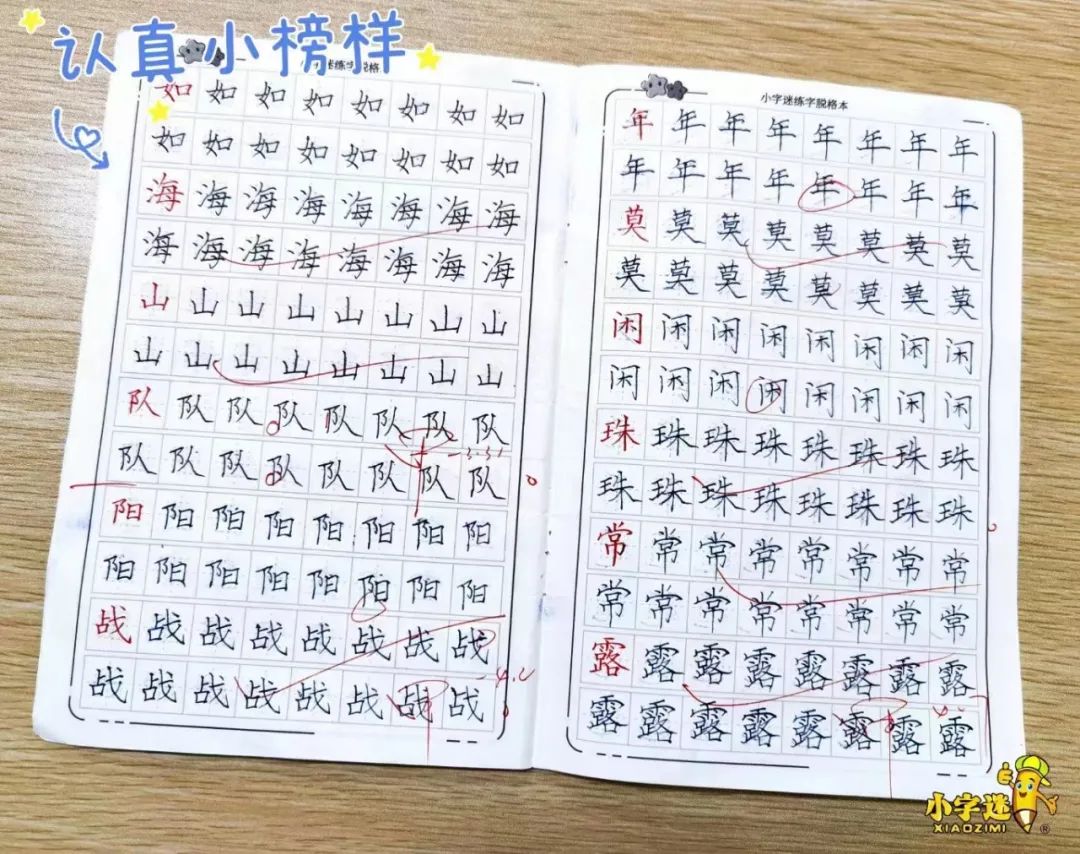 认真小榜样
迷练字脱格
如如如如如如如如
如如如如如如如如
海海海海海海海海
海海海海海海海海
山山山山山山山山
山山山山山山山山
队队队队队队队队
队队队队队队队队
阳阳阳阳阳阳阳阳
阳阳阳阳阳阳阳阳
战战战战战战战战
战战战战战战战战
小字迷练字脱格本
年年年年年年年年
年年年年年年年年
莫莫莫莫莫莫莫莫
莫莫莫莫莫莫莫莫
闲闲闲闲闲闲闲闲
闲闲闲闲闲闲闲闲
珠珠珠珠珠珠珠珠
珠珠珠珠珠珠珠珠
常常常常常常常常
常常常常常常常常
露露露露露露露露
露露露露露露露露
小字迷
XIAOZIMI®